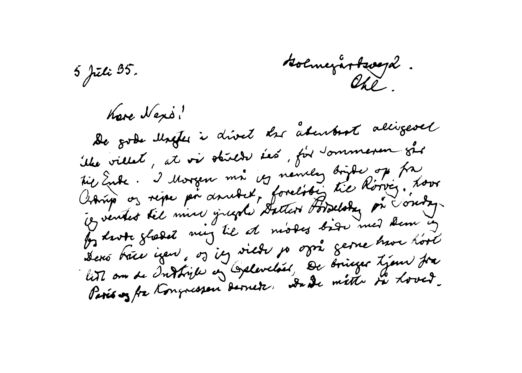 5 Juli 35.
Holmegårdsvej 2.
Chl.
Kære Nexø!
De gode Magter i Livet har åbenbart alligevel
ikke villet, at vi skulde ses, før Sommeren går
til Ende. I Morgen må jeg nemlig bryde op fra
Ordrup og rejse på Landet, foreløbig til Rørvig, hvor
jeg ventes til min yngste Datters Fødselsdag på Søndag.
Jeg havde glædet mig til at mødes både med Dem og
Deres Frue igen, og jeg vilde jo også gerne have hørt
lidt om de Indtryk og Oplevelser, De bringer hjem fra
Paris og fra Kongressen dernede. Da De måtte så hoved-